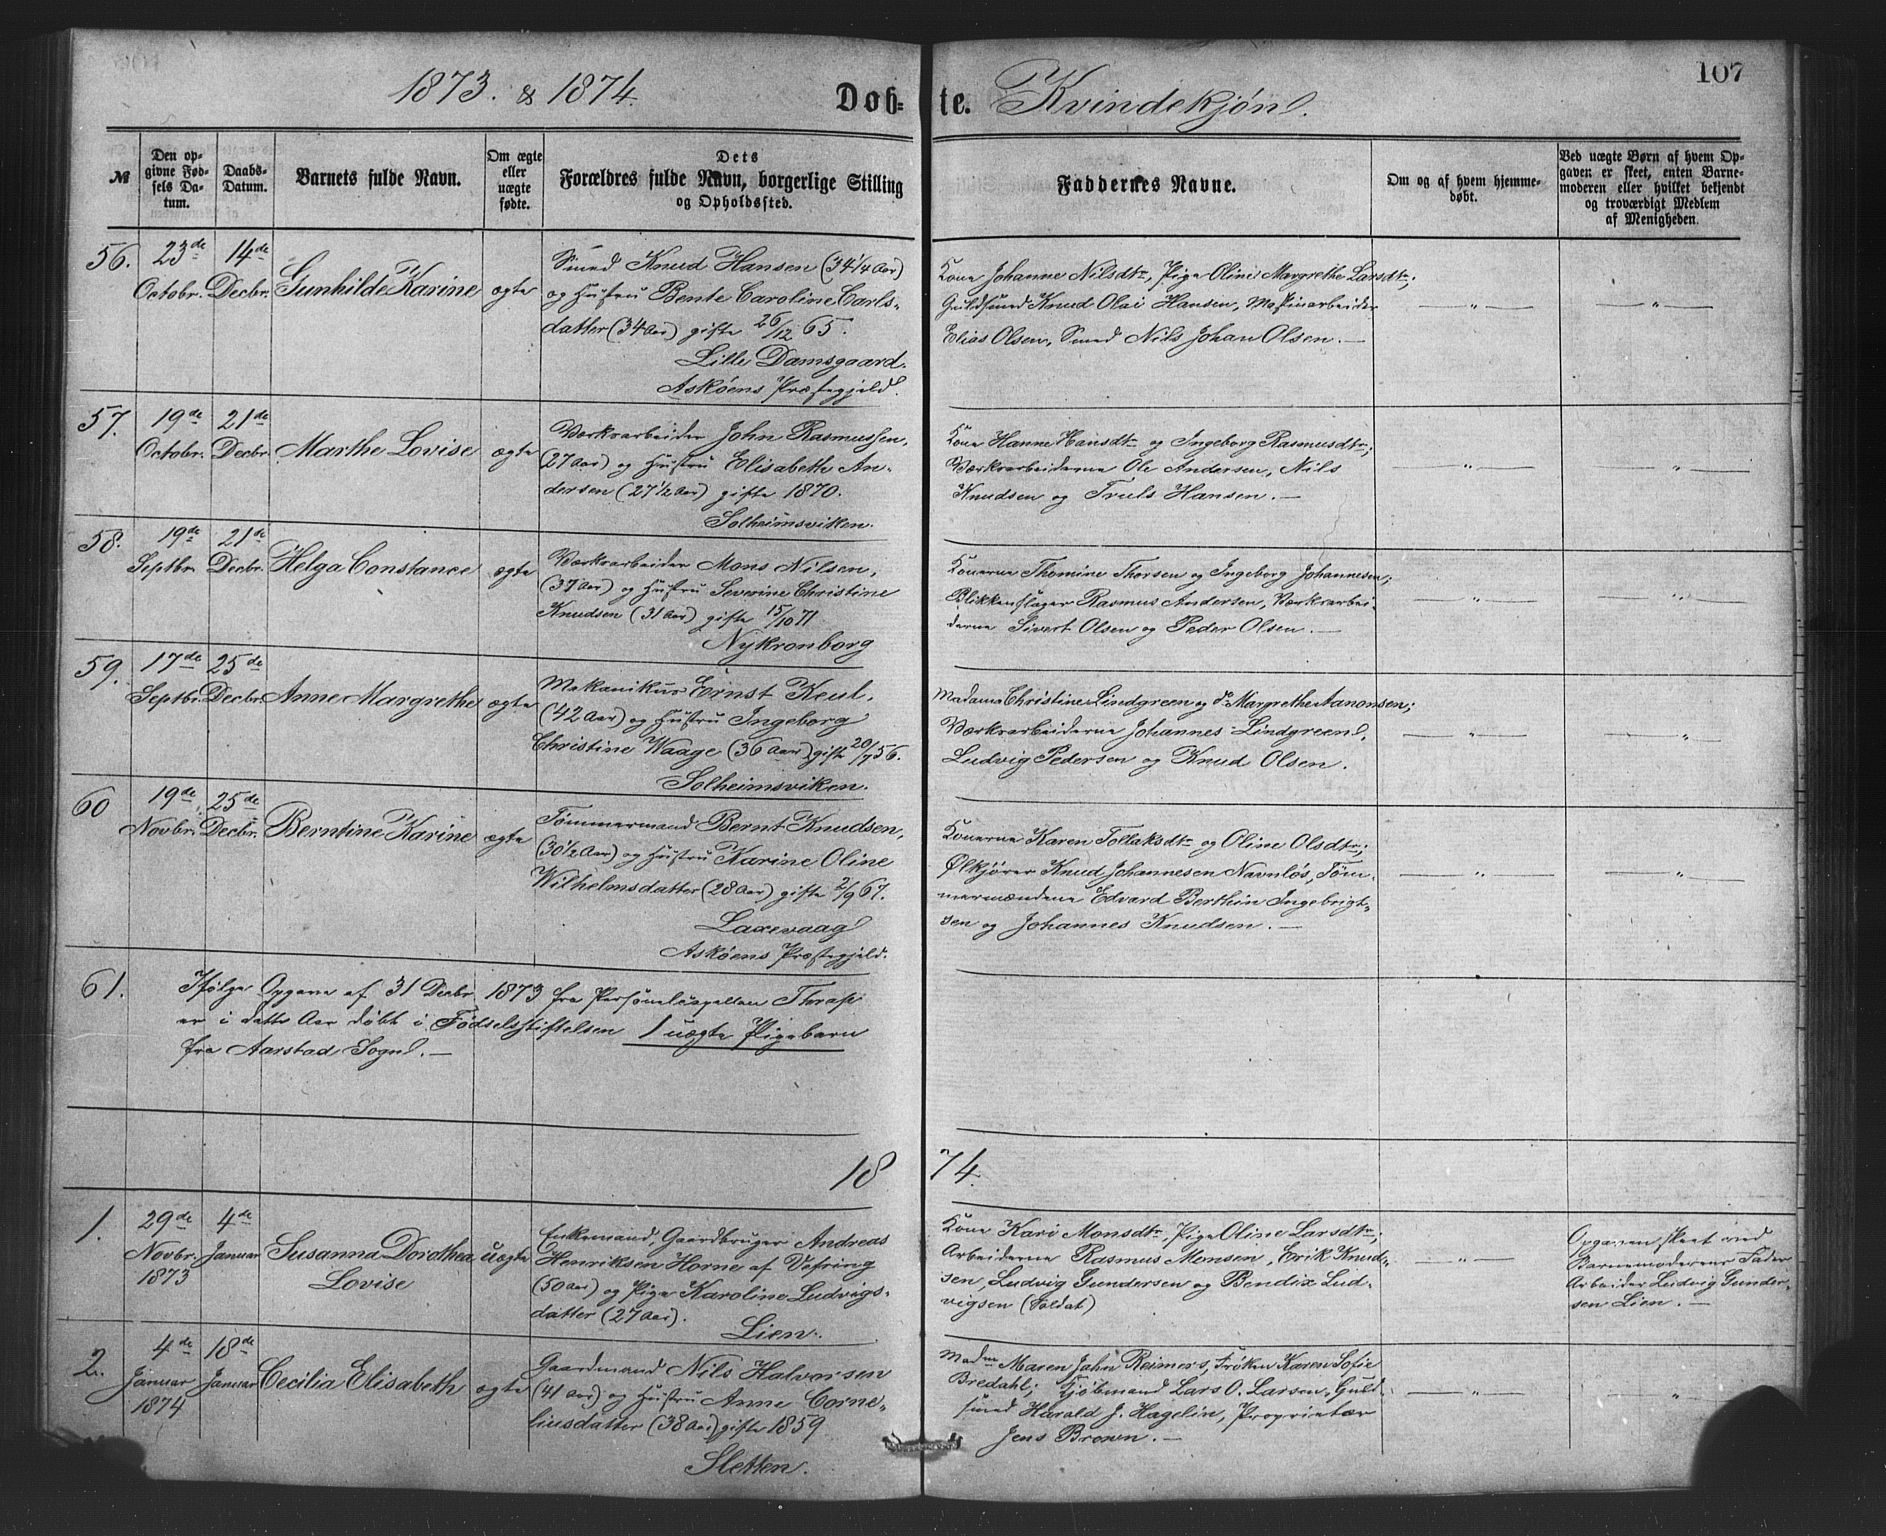 107
1873. & 1874.
Döb-te. Kvindekjøn.
№
Den op-
givne Fød-
sels Da-
tum.
Daabs-
Datum.
Barnets fulde Navn.
Om ægte
eller
uægte
fødte.
Dets
Forældres fulde Navn, borgerlige Stilling
og Opholdssted.
Faddernes Navne.
Om og af hvem hjemme-
døbt.
Ved uægte Børn af hvem Op-
gaven er skeet, enten Barne-
moderen eller hvilket bekjendt
og troværdigt Medlem
af Menigheden.
56.
23de
Octobr.
14de
Decbr.
Gunhilde Karine
ægte
Smed Knud Hansen (34 1/4 Aar)
og Hustru Bente Caroline Carls-
datter (34 Aar) gifte 26/12 65.
Lille Damsgaard.
Askøens Præstegjeld.
Kone Johanne Nilsdtr, Pige Oline Margrethe Larsdtr;
Guldsmed Knud Olai Hansen, Maskinarbeider
Elias Olsen, Smed Nils Johan Olsen. —
— " —
— " —
57.
19de
Octobr.
21de
Decbr.
Marthe Lovise
ægte
Værksarbeider John Rasmussen,
(27 Aar) og Hustru Elisabeth An-
dersen (27 1/2 Aar) gifte 1870.
Solheimsviken.
Kone Hanne Hansdtr og Ingeborg Rasmusdtr;
Værksarbeiderne Ole Andersen, Nils
Knudsen og Truls Hansen. —
— " —
— " —
58.
19de
Septbr.
21de
Decbr.
Helga Constance
ægte
Værksarbeider Mons Nilsen,
(37 Aar) og Hustru Severine Christine
Knudsen (31 Aar) gifte 15/10 71
Nykronborg
Konerne Thomine Thorsen og Ingeborg Johannesen;
Blikkenslager Rasmus Andersen, Værksarbei-
derne Sivert Olsen og Peder Olsen. —
— " —
— " —
59.
17de
Septbr.
25de
Decbr.
Anne Margrethe
ægte
Mekanikus Ernst Keul,
(42 Aar) og Hustru Ingeborg
Christine Waage (36 Aar) gifte 20/7 56.
Solheimsviken.
Madame Christine Lindgreen og do Margrethe Aanonsen;
Værksarbeiderne Johannes Lindgreen,
Ludvig Pedersen og Knud Olsen.
— " —
"
60
19de
Novbr.
25de
Decbr.
Berntine Karine
ægte
Tømmermand Bernt Knudsen,
(30 1/2 Aar) og Hustru Karine Oline
Wilhelmsdatter (28 Aar) gifte 2/9 67.
Laxevaag
Askøens Præstegjeld.
Konerne Karen Tollaksdtr og Oline Olsdtr;
Ølkjører Knud Johannesen Navnløs, Tøm-
mermændene Edvard Berthin Ingebrigt-
sen og Johannes Knudsen. —
— " —
— " —
61.
Ifølge Opgave af 31 Decbr. 1873 fra Personelcapellan Thrap
er i dette Aar døbt i Fødselsstiftelsen 1 uægte Pigebarn
fra Aarstad Sogn. —
1874.
1.
29de
Novbr.
1873
4de
Januar
Susanna Dorothea
Lovise
uægte
Enkemand, Gaardbruger Andreas
Henriksen Horne af Vefring
(50 Aar) og Pige Karoline Ludvigs-
datter (27 Aar).
Lien.
Kone Kari Monsdtr, Pige Oline Larsdtr;
Arbeiderne Rasmus Monsen, Erik Knud-
sen, Ludvig Gundersen og Bendix Lud-
vigsen (Soldat)
— " —
Opgaven skeet ved
Barnemoderens Fader
Arbeider Ludvig Gunder-
sen Lien. —
2.
4de
Januar
1874
18de
Januar
Cecilia Elisabeth
ægte
Gaardmand Nils Halvorsen
(41 Aar) og Hustru Anne Corne-
liusdatter (38 Aar) gifte 1859
Sletten.
Madme Maren Jahn Reimers, Frøken Karen Sofie
Bredahl; Kjøbmand Lars O. Larsen, Guld-
smed Harald J. Hagelin, Proprietær
Jens Brown. —
— " —
"